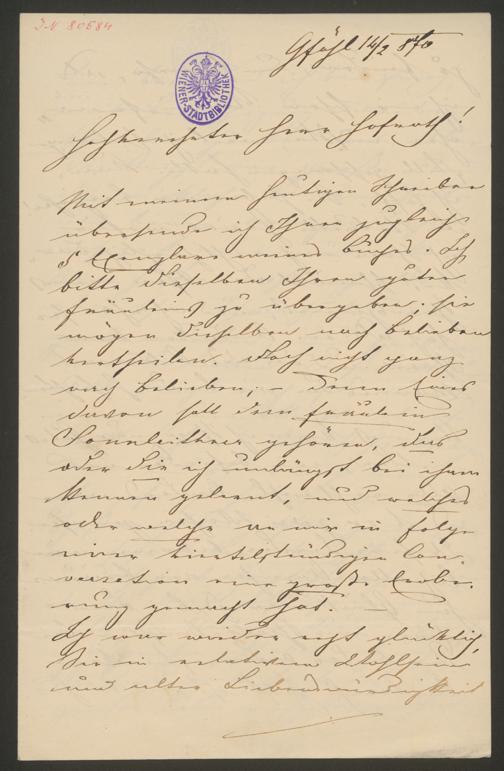 I.N. 80684
WIENER-STADTBIBLIOTHEK
Gföhl 14/2 870
Hochverehrter Herr Hofrath!
Mit meinem heutigen Schreiben
übersende ich Ihnen zugleich
5 Exemplare meines Buches. Ich
bitte dieselben Ihren guten
Fräuleins zu übergeben; sie
mögen dieselben nach Belieben
vertheilen. Doch nicht ganz
nach Belieben; – denn Eines
davon soll dem Fräulein
Sonnleithner gehören, das
oder die ich unlängst bei ihnen
kennen gelernt, und welches
oder welche an mir in Folge
einer viertelstündigen Con-
versation eine große Erobe-
rung gemacht hat. –
Ich war wieder recht glücklich,
Sie in relativem Wohlsein
und alter Liebenswürdigkeit